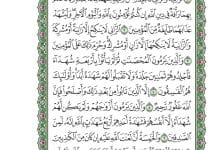 بِهِمَا رَأْفَةٌ فِي دِينِ ٱللَّهِ إِن كُنتُمْ تُؤْمِنُونَ بِٱللَّهِ وَٱلْيَوْمِ ٱلْأٓخِرِ وَلْيَشْهَدْ
عَذَابَهُمَا طَآئِفَةٌ مِّنَ ٱلْمُؤْمِنِينَ ٢ ٱلزَّانِي لَا يَنكِحُ إِلَّا زَانِيَةً أَوْ مُشْرِكَةً
وَٱلزَّانِيَةُ لَا يَنكِحُهَآ إِلَّا زَانٍ أَوْ مُشْرِكٌ وَحُرِّمَ ذَٰلِكَ عَلَى ٱلْمُؤْمِنِينَ
٣ وَٱلَّذِينَ يَرْمُونَ ٱلْمُحْصَنَٰتِ ثُمَّ لَمْ يَأْتُوا۟ بِأَرْبَعَةِ شُهَدَآءَ
فَٱجْلِدُوهُمْ ثَمَٰنِينَ جَلْدَةً وَلَا تَقْبَلُوا۟ لَهُمْ شَهَٰدَةً أَبَدًا وَأُو۟لَٰٓئِكَ
هُمُ ٱلْفَٰسِقُونَ ٤ إِلَّا ٱلَّذِينَ تَابُوا۟ مِنۢ بَعْدِ ذَٰلِكَ وَأَصْلَحُوا۟ فَإِنَّ
ٱللَّهَ غَفُورٌ رَّحِيمٌ ٥ وَٱلَّذِينَ يَرْمُونَ أَزْوَٰجَهُمْ وَلَمْ يَكُن لَّهُمْ
شُهَدَآءُ إِلَّآ أَنفُسُهُمْ فَشَهَٰدَةُ أَحَدِهِمْ أَرْبَعُ شَهَٰدَٰتٍۭ بِٱللَّهِ إِنَّهُۥ لَمِنَ
ٱلصَّٰدِقِينَ ٦ وَٱلْخَٰمِسَةُ أَنَّ لَعْنَتَ ٱللَّهِ عَلَيْهِ إِن كَانَ مِنَ ٱلْكَٰذِبِينَ